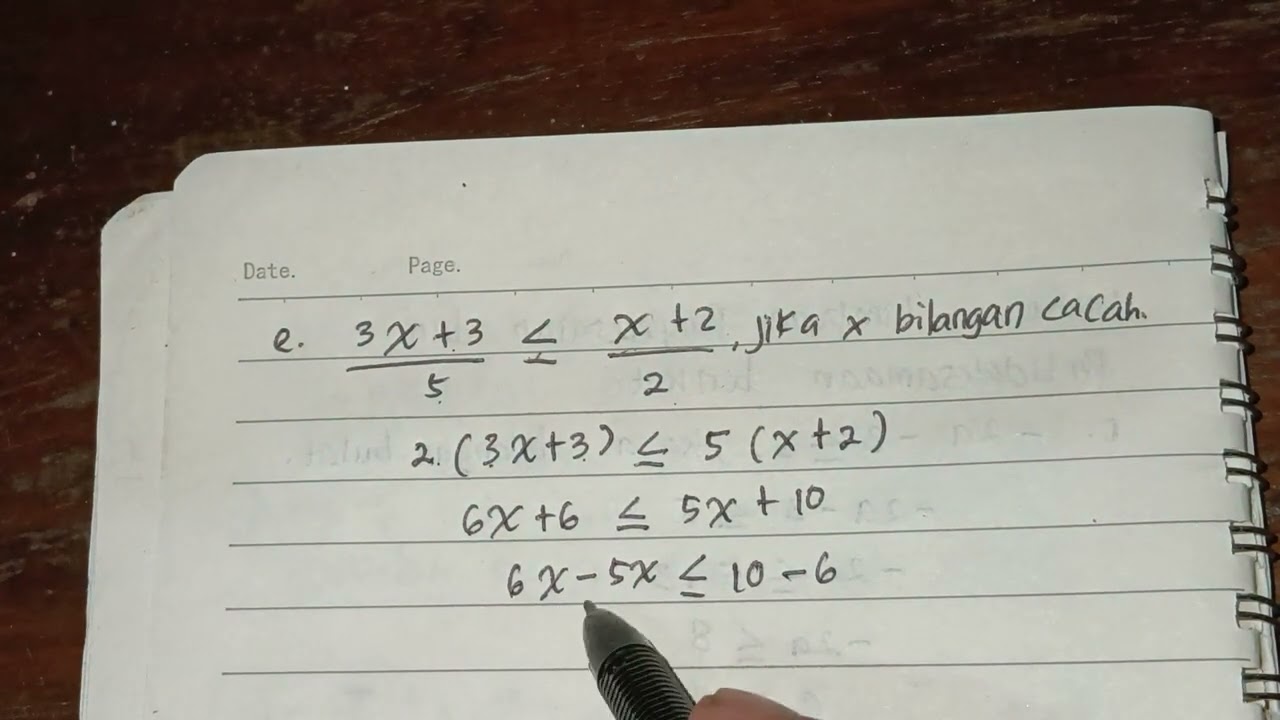 Date. Page.
e. 3x + 3 / 5 ≤ x + 2 / 2, jika x bilangan cacah.
2. (3x + 3) ≤ 5 (x + 2)
6x + 6 ≤ 5x + 10
6x - 5x ≤ 10 - 6
-2a ≤ 8